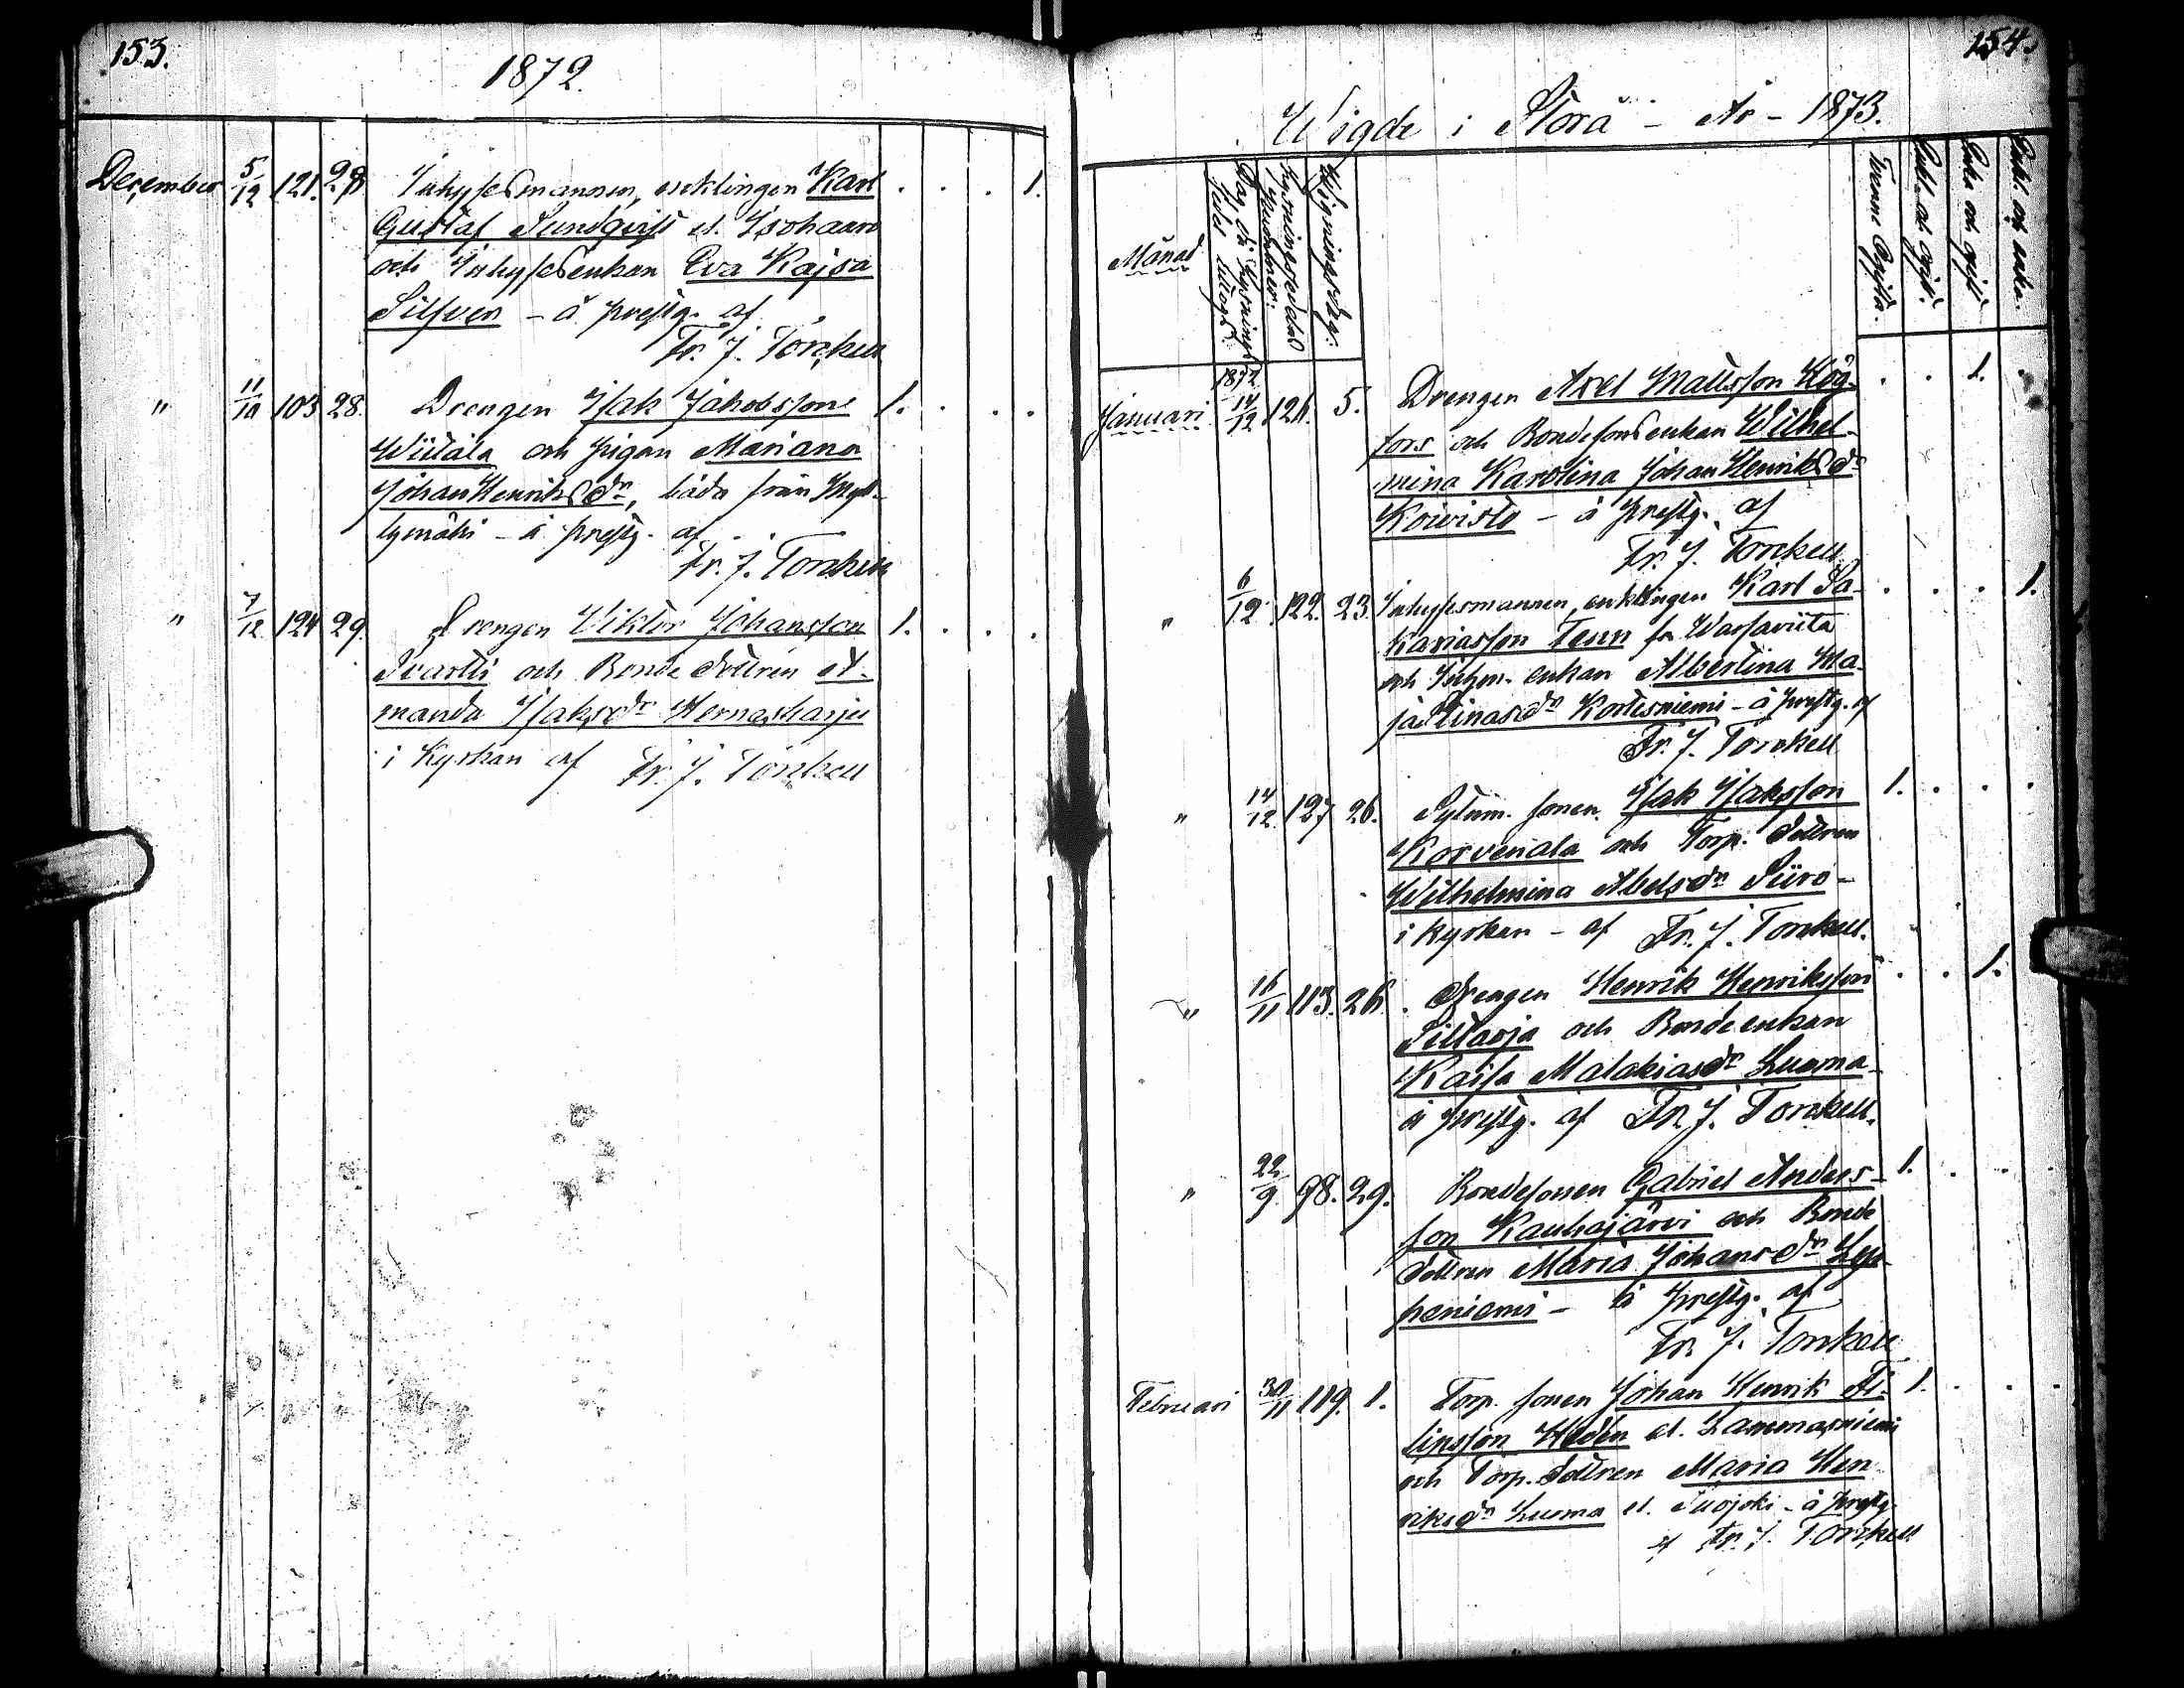 153.
1872.
December 5/12 121. 27 Inhysesmannen, enklingen Karl . . . 1.
Gustaf Sundqvist el. Isohaaro
och Inhysesenkan Eva Kajsa
Silfver - å prestg. af
Fr. J. Tornkell
" 11/10 103 28. Drengen Isak Jakobsson 1. . . .
Wiitala och pigan Mariana
Johan Henriksdr, båda från Myl-
lymäki - å prestg. af
Fr. J. Tornkell
" 7/12 124 29. Drengen Viktor Johansson 1. . . .
Svartti och Bonde dottren A-
manda Isaksdr Hernesharju
i Kyrkan af Fr. J. Tornkell
154.
Wigde i Storå - År - 1873.
Månad
Dag, då lysning
sedel uttogs.
Lysningssedelns
Nummer.
Vigningsdag.
Tvenne Ogifta.
Enkl. och ogift.
Enka och ogift
Enkl. och enka.
Januari 1872 14/12 126. 5. Drengen Axel Mattsson Hög- . . 1. .
fors och Bondesonsenkan Wilhel-
mina Karolina Johan Henriksdr
Koivisto - å prestg. af
Fr. J. Tornkell
" 6/12 122. 23. Inhysesmannen, enklingen Karl Sa- . . . 1.
kariasson Tenn fr. Warsaviita
och Inhys. enkan Albertina Ma-
ja Stinasdr Kortesniemi - å prestg. af
Fr. J. Tornkell
" 14/12 127 26. Sytnin. sonen Isak Isaksson 1. . . .
Korvenala och Torp. dottren
Wilhelmina Abelsdr Siiro -
i kyrkan - af Fr. J. Tornkell.
" 16/11 113. 26. Drengen Henrik Henriksson . . 1.
Siltarja och Bondeenkan
Kaisa Malakiasdr Luoma -
å prestg. af Fr. J. Tornkell.
" 22/9 98. 29. Bondesonen Gabriel Anders- 1. . . .
son Kauhajärvi och Bonde
dottren Maria Johansdr Lep-
päniemi - å prestg. af
Fr. J. Tornkell
Februari 30/11 119. 1. Torp. sonen Johan Henrik Fi- 1. . . .
lipsson Hedén el. Lammasniemi
och Torp. dottren Maria Hen-
riksdr Luoma el. Suojoki - å prestg.
af Fr. J. Tornkell